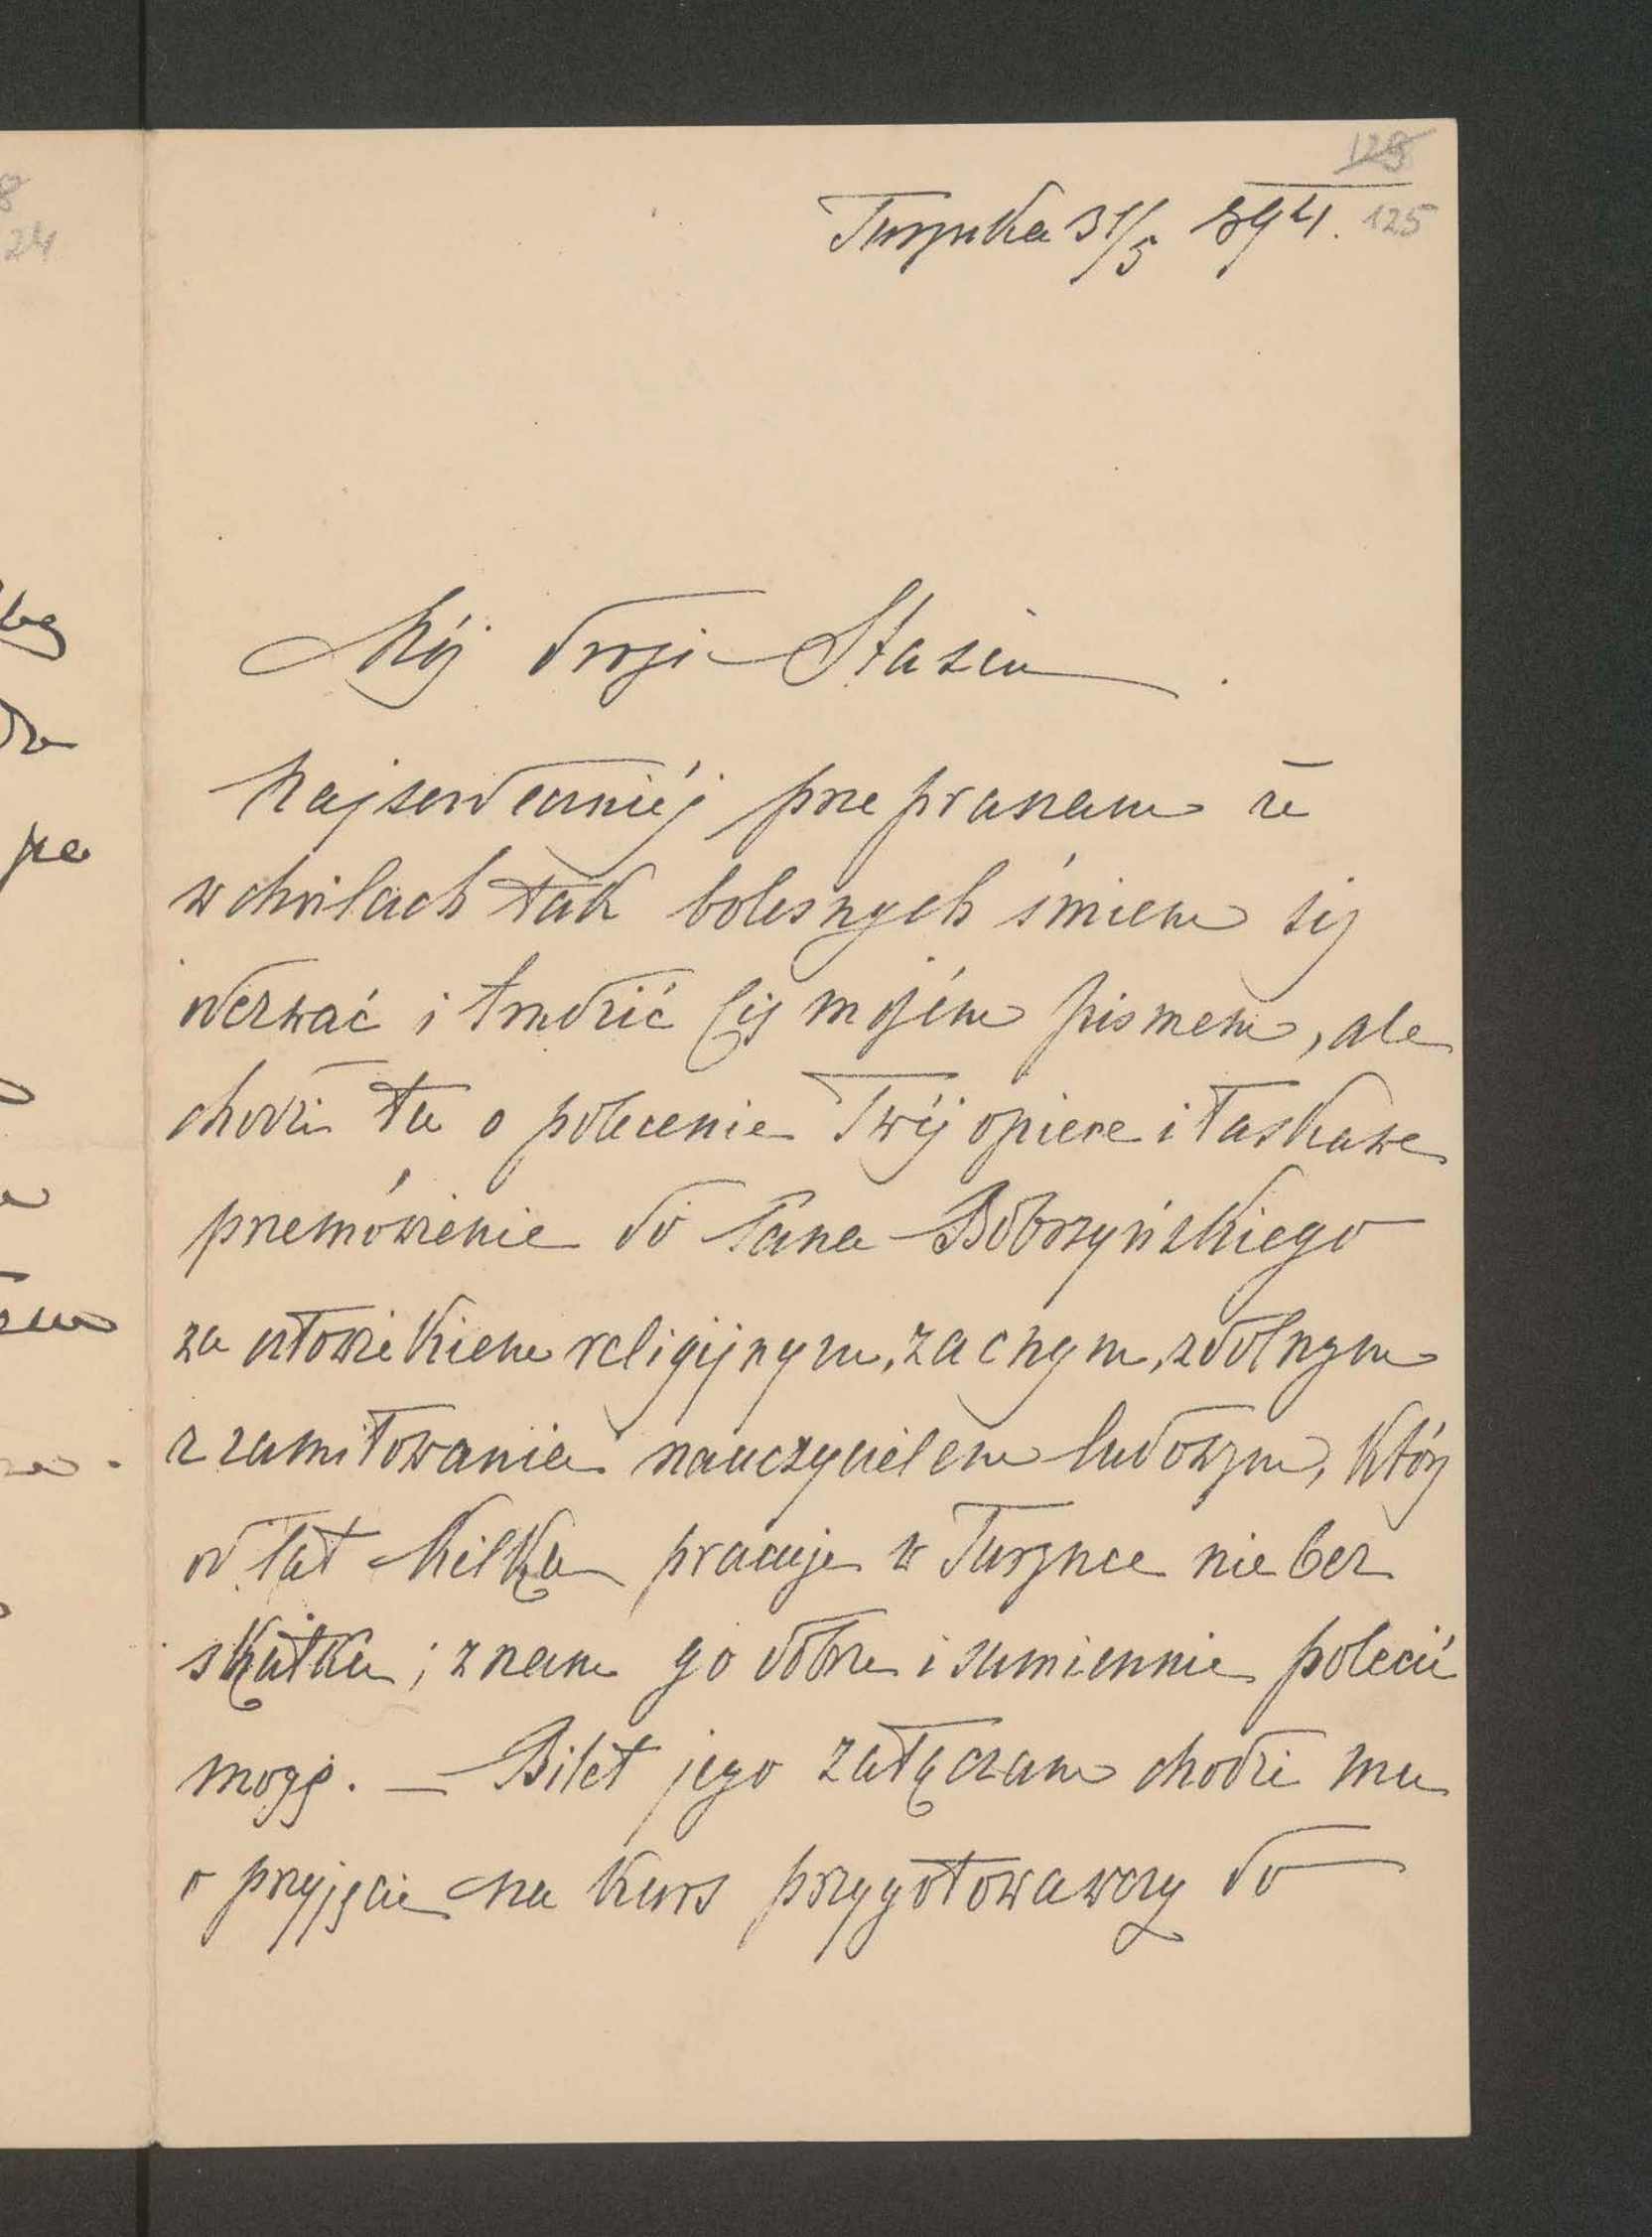 129
Turynka 31/5 894. 125
Mój drogi Stasiu.
Najserdeczniéj przepraszam że
w chwilach tak bolesnych śmiem się
odezwać i trudzić Cię mojém pismem, ale
chodzi tu o polecenie Twéj opiece i łaskawe
przemówienie do Pana Bobrzyńskiego
za człowiekiem religijnym, zacnym, zdolnym
z zamiłowania nauczycielem ludowym, który
od lat kilku pracuje w Turynce nie bez
skutku; znam go dobrze i sumiennie polecić
mogę. — Bilet jego załączam chodzi mu
o przyjęcie na kurs przygotowawczy do